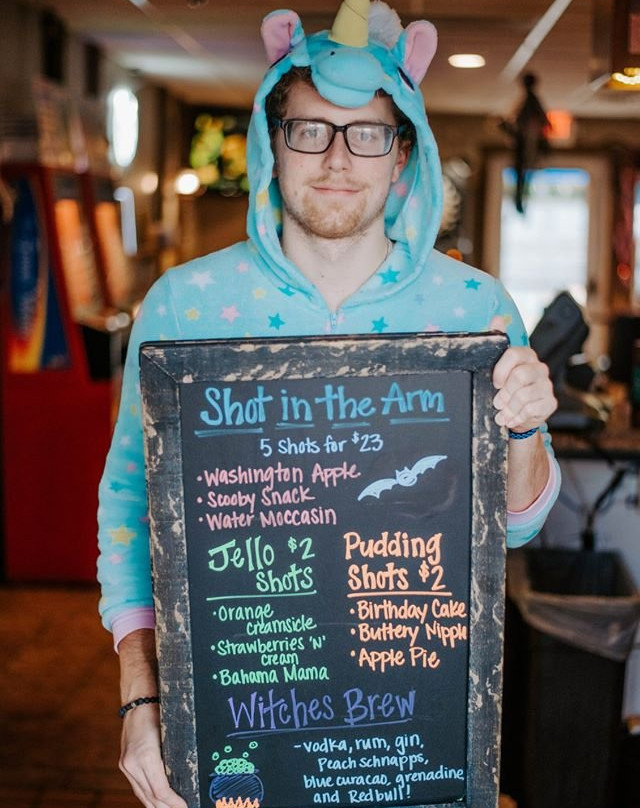 Shot in the Arm
5 Shots for $23
• Washington Apple
• Scooby Snack
• Water Moccasin
Jello $2
Shots
• Orange
creamsicle
• Strawberries 'N'
cream
• Bahama Mama
Pudding
Shots $2
• Birthday Cake
• Buttery Nippl
• Apple Pie
Witches Brew
- vodka, rum, gin,
Peach schnapps,
blue curacao, grenadine
and Redbull!